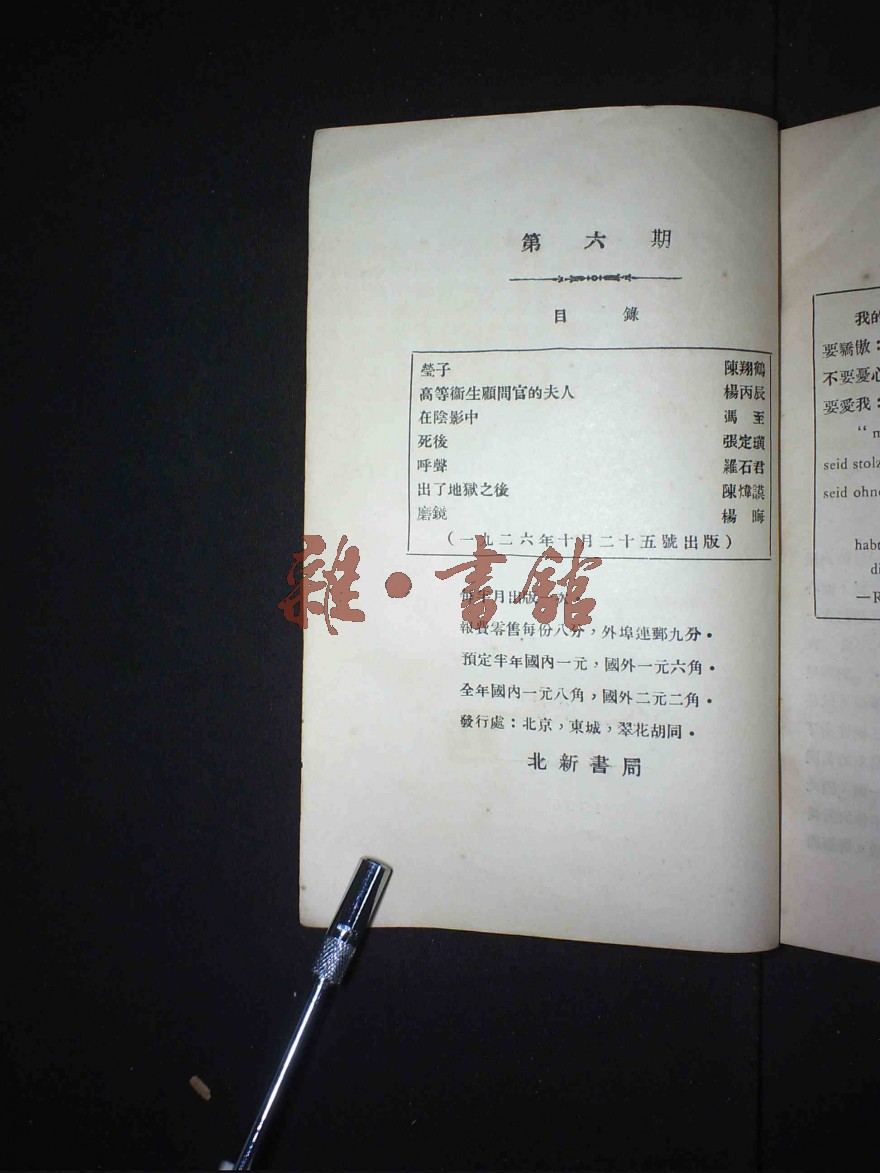 第六期
目錄
瑩子 陳翔鶴
高等衞生顧問官的夫人 楊丙辰
在陰影中 馮至
死後 張定璜
呼聲 羅石君
出了地獄之後 陳煒謨
磨鏡 楊晦
(一九二六年十月二十五號出版)
每半月出版一次。
報費零售每份八分,外埠連郵九分。
預定半年國內一元,國外一元六角。
全年國內一元八角,國外二元二角。
發行處:北京,東城,翠花胡同。
北新書局
雜·書館
我的
要驕傲:
不要憂心
要愛我:
seid stolz
seid ohne
habt